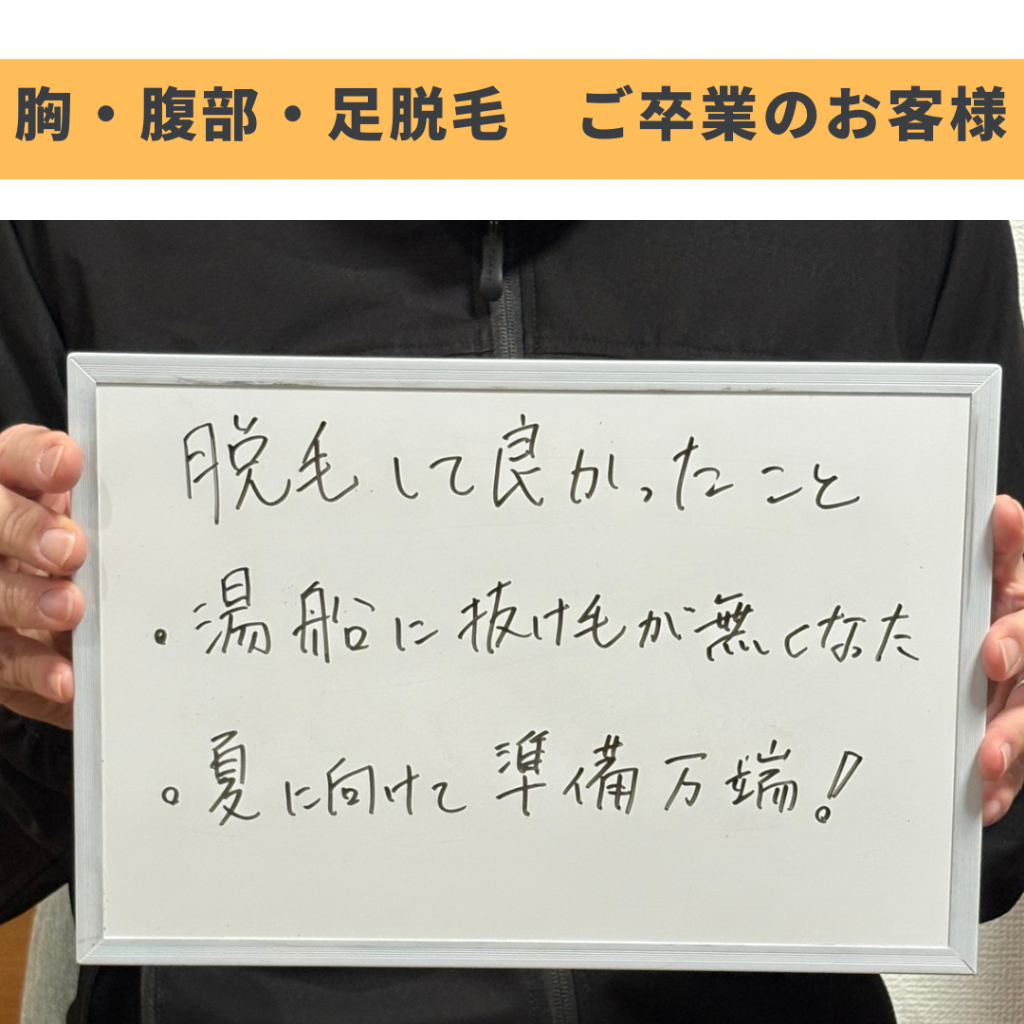 胸・腹部・足脱毛　ご卒業のお客様
脱毛して良かったこと
・湯船に抜け毛が無くなった
・夏に向けて準備万端!